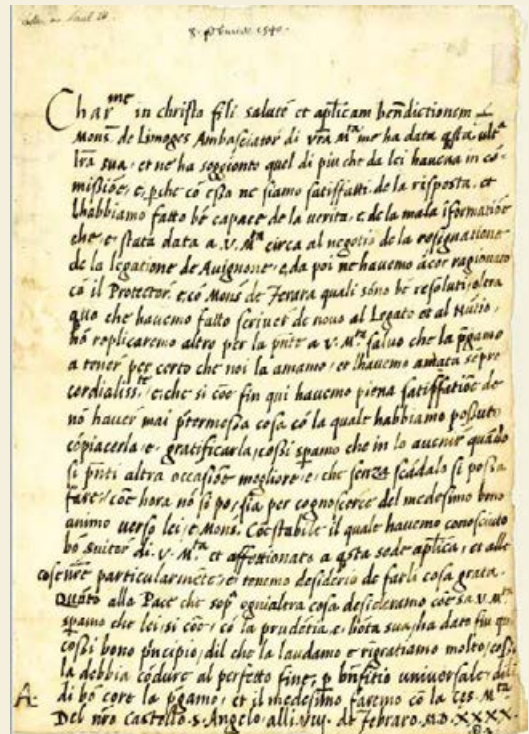 8. februar. 1540.
Char^me in christo fili saluté et aplicam bendictionem
Mons^r de Limoges Ambasciator di vra M^tà me ha data qsta ult^a
lra sua, et ne ha soggionto quel di piu che da lei haueua in có-
missióe, e, pche có essa ne siamo satisfatti de la risposta, et
lhabbiamo fatto bé capace de la uerita, e de la mala iformatióe
che e stata data a V. M^tà circa al negotio de la resignatione
de la legatione de Auignone, e, da poi ne hauemo ácor ragionato
có il Protector, e, có Mons^r de Ferara quali sóno bé resoluti, oltra
quo che hauemo fatto scriuer de nouo al Legato et al Nútio,
nó replicaremo altro per la pnte a V. M^tà saluo che la pgamo
a tener per certo che noi la amamo, et lhauemo amata sépre
cordialiss^te, e, che si cóe fin qui hauemo piena satisfatióe de
nó hauer mai ptermessa cosa có la quale habbiamo possuto
cópiacerla, e, gratificarla, cossi spamo che in lo auenir quádo
si pnti altra occasióe megliore, e, che senza scádalo si possa
fare, cóe hora nó si po, sia per cognoscerce del medesimo bono
animo uerso lei, e, Mons. Cóestabile il quale hauemo conosciuto
bó suitor di. V. M^tà et affettionato a qsta sede aplica, et alle
cose nre particularméte, e, tenemo desiderio de farli cosa grata.
Quáto alla Pace che sop^a ognialtra cosa desideramo cóe sa V. M^tà
spamo che lei, si cóe, có la prudétia, e, bótà sua, ha dato fin qui
cossi bono pncipio, dil che la laudamo e rigratiamo molto, cossi
la debbia códure al perfetto fine, p bnfitio uniuersale, del
di bó core la pgamo, et il medesimo faremo có la ces. M^tà
Del nro Castello. S. Angelo, alli. viij. de febraro. M.D.XXXX
A